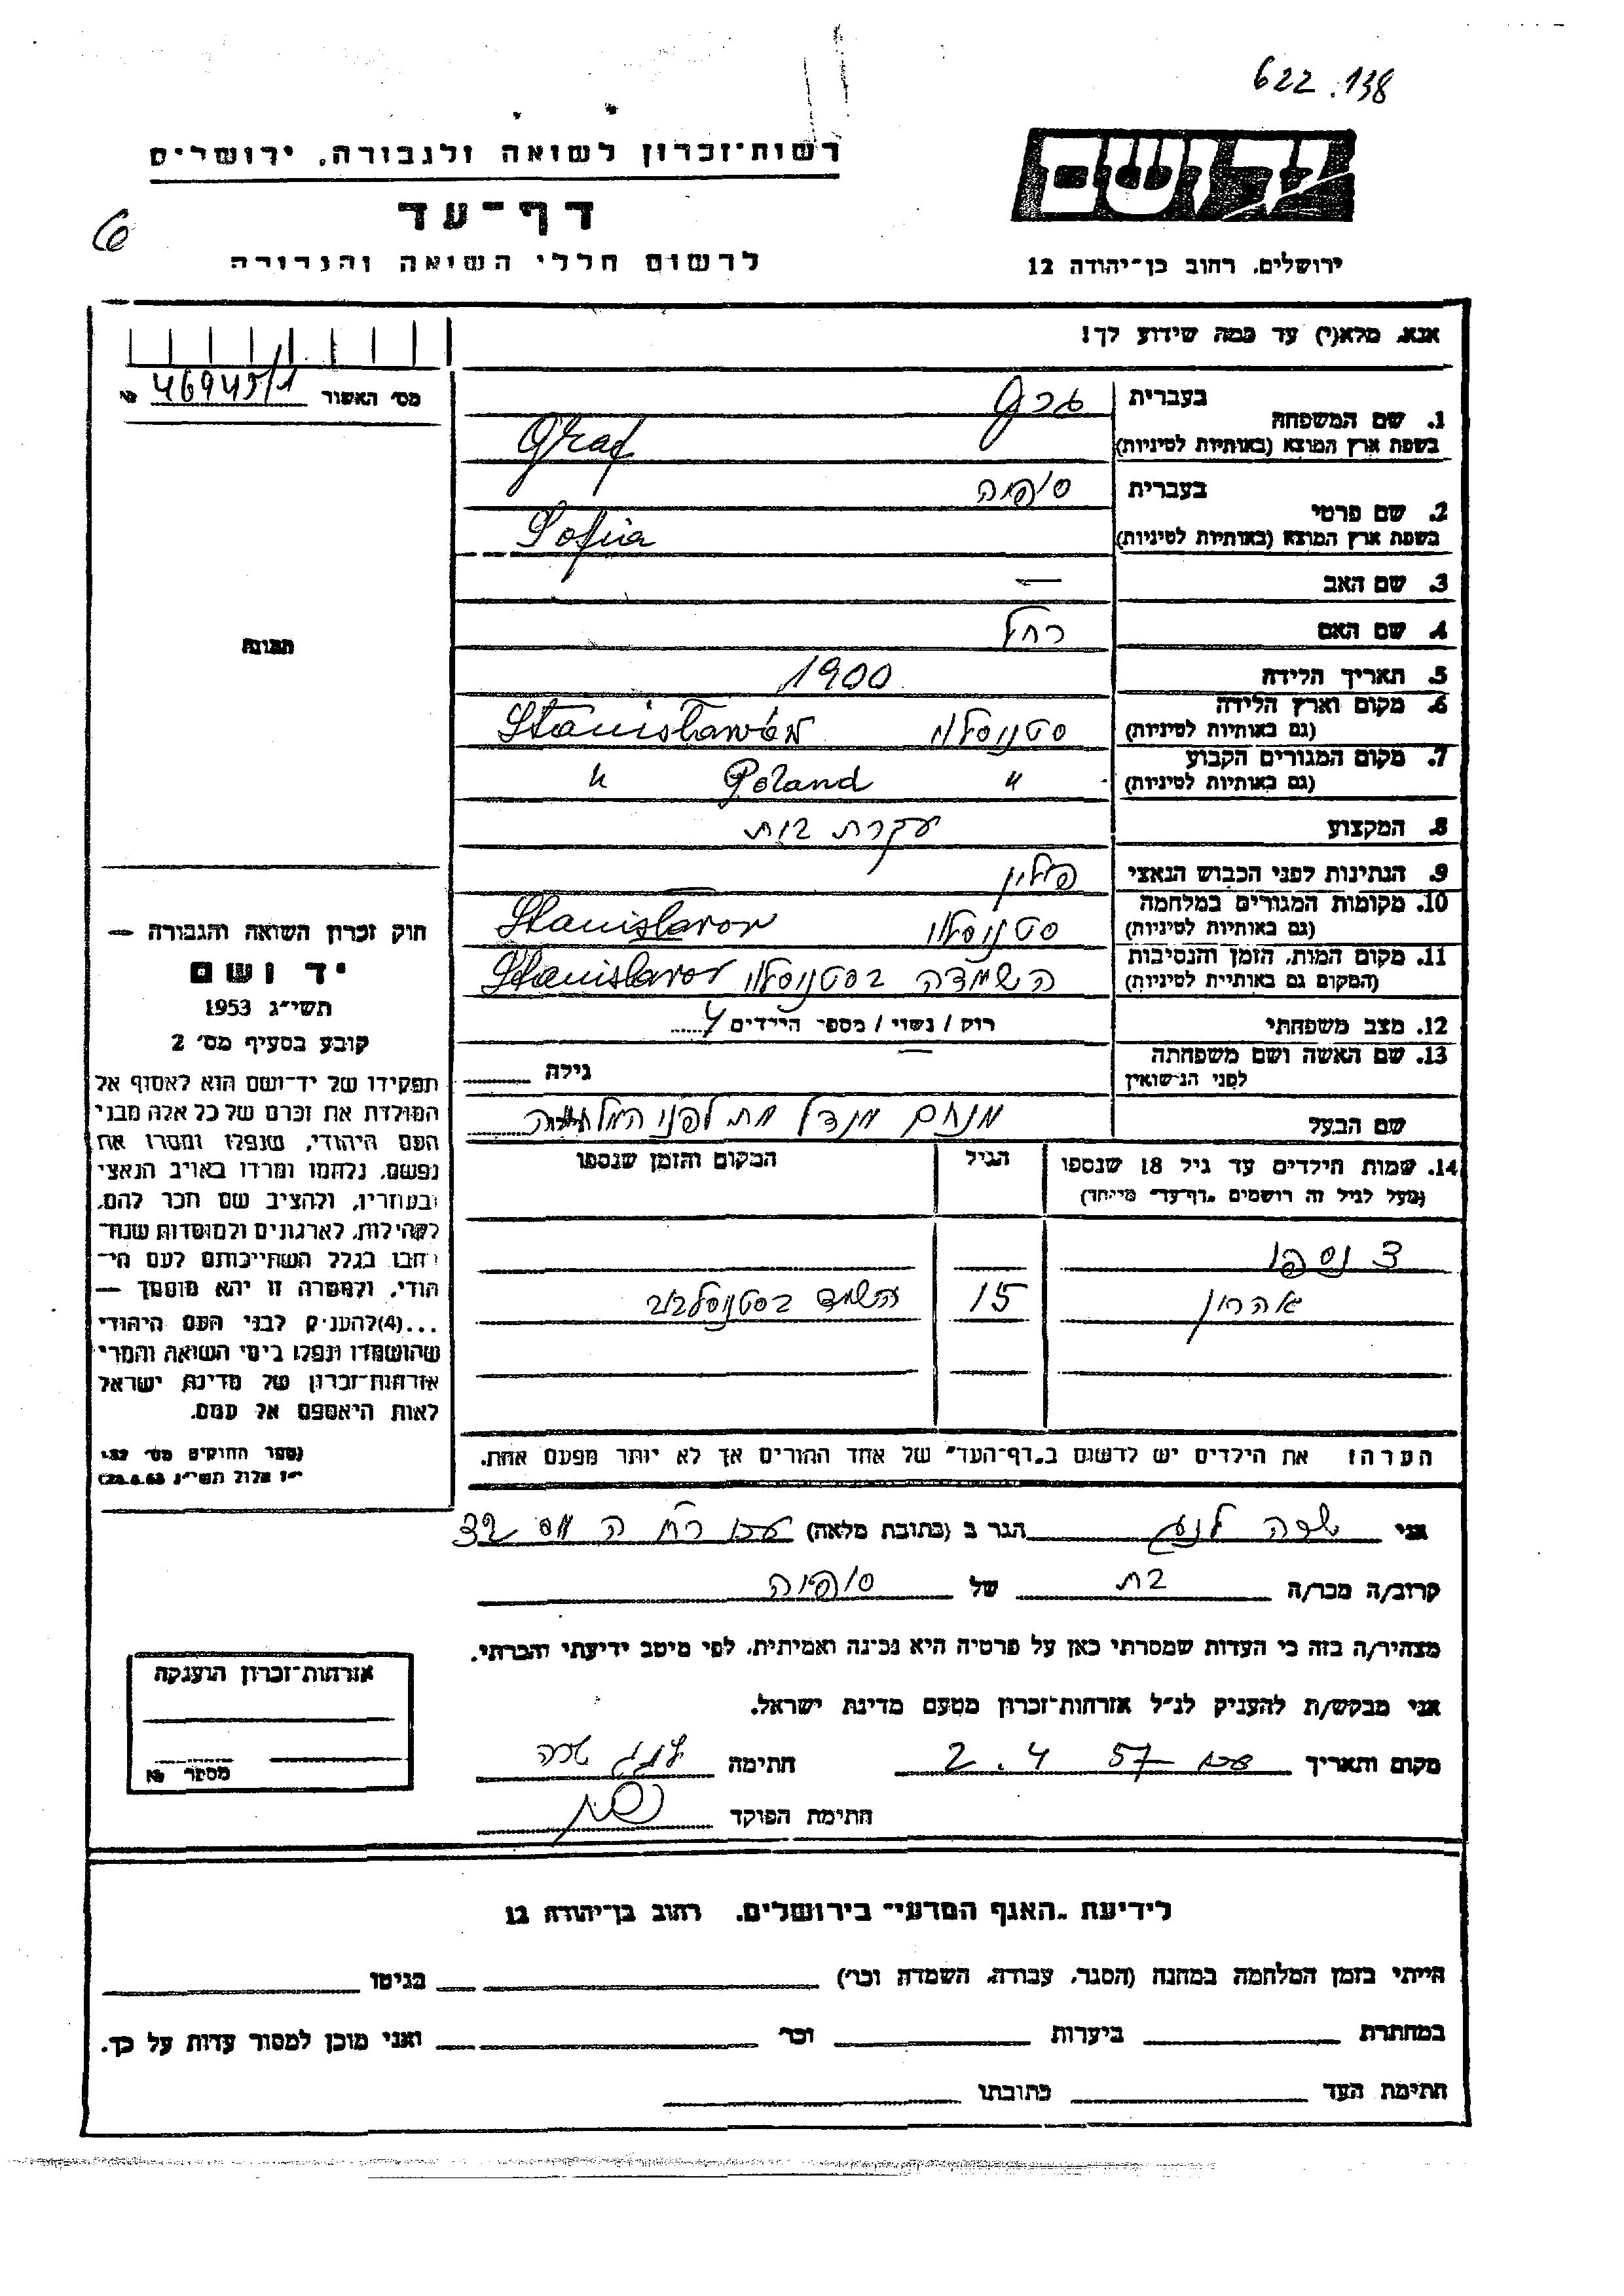 622.138
רשות־זכרון לשואה ולגבורה, ירושלים
יד ושם
דף־עד
6
לרשום חללי השואה והגבורה
ירושלים, רחוב בן־יהודה 12
אנא, מלא(י) עד כמה שידוע לך!
מס׳ האשור 46945/1 №
בעברית גרף
1. שם המשפחה
בשפת ארץ המוצא (באותיות לטיניות) Graf
בעברית סופיה
2. שם פרטי
בשפת ארץ המוצא (באותיות לטיניות) Sofia
3. שם האב —
4. שם האם רחל
תמונה
5. תאריך הלידה 1900
6. מקום וארץ הלידה סטניסלו Stanisławów
(גם באותיות לטיניות)
7. מקום המגורים הקבוע " Poland "
(גם באותיות לטיניות)
8. המקצוע עקרת בית
9. הנתינות לפני הכבוש הנאצי פולין
10. מקומות המגורים במלחמה סטניסלו Stanislavov
(גם באותיות לטיניות)
11. מקום המות, הזמן והנסיבות השמדה בסטניסלו Stanislavov
(המקום גם באותיות לטיניות)
12. מצב משפחתי רוק / נשוי / מספר הילדים 4
13. שם האשה ושם משפחתה — גילה
לפני הנישואין
שם הבעל מנחם מנדל מת לפני המלחמה
14. שמות הילדים עד גיל 18 שנספו הגיל המקום והזמן שנספו
(מעל לגיל זה רושמים „דף־עד" מיוחד)
3 נספו
אהרון 15 השמד בסטניסלבוב
הערה: את הילדים יש לרשום ב„דף־העד" של אחד ההורים אך לא יותר מפעם אחת.
חוק זכרון השואה והגבורה —
יד ושם
תשי״ג 1953
קובע בסעיף מס׳ 2
תפקידו של יד־ושם הוא לאסוף אל
המולדת את זכרם של כל אלה מבני
העם היהודי, שנפלו ומסרו את
נפשם, נלחמו ומרדו באויב הנאצי
ובעוזריו, ולהציב שם וזכר להם,
לקהילות, לארגונים ולמוסדות שנח־
רבו בגלל השתייכותם לעם הי־
הודי, ולמטרה זו יהא מוסמך —
...(4) להעניק לבני העם היהודי
שהושמדו ונפלו בימי השואה והמרי
אזרחות־זכרון של מדינת ישראל
לאות היאספם אל עמם.
(ספר החוקים מס׳ 132
י״ז אלול תשי״ג 28.8.53)
אני שרה הגר ב (כתובת מלאה) עכו רח ה מס 32
קרוב/ה מכר/ה בת של סופיה
מצהיר/ה בזה כי העדות שמסרתי כאן על פרטיה היא נכונה ואמיתית, לפי מיטב ידיעתי והכרתי.
אני מבקש/ת להעניק לנ״ל אזרחות־זכרון מטעם מדינת ישראל.
מקום ותאריך עכו 2. 4 57 חתימה שרה
חתימת הפוקד
אזרחות־זכרון הוענקה
מספר №
לידיעת „האגף המדעי" בירושלים, רחוב בן־יהודה 12
הייתי בזמן המלחמה במחנה (הסגר, עבודה, השמדה וכו׳) בגיטו
במחתרת ביערות וכו׳ ואני מוכן למסור עדות על כך.
חתימת העד כתובתו